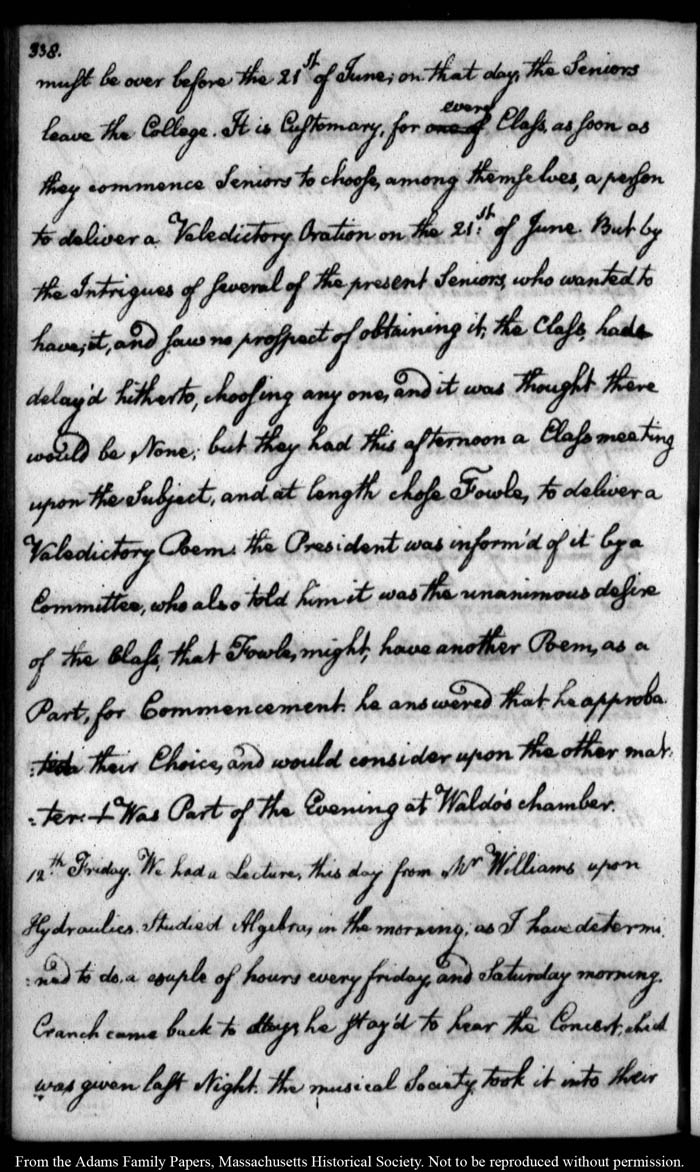 338.
must be over before the 21st of June; on that day, the Seniors
leave the College. It is Customary, for one of every Class, as soon as
they commence Seniors to choose, among themselves, a person
to deliver a Valedictory Oration on the 21st: of June. But by
the Intrigues of several of the present Seniors, who wanted to
have, it, and saw no prospect of obtaining it, the Class, had
delay'd hitherto, choosing any one, and it was thought there
would be, None; but they had this afternoon a Class meeting
upon the Subject, and at length chose Fowle, to deliver a
Valedictory Poem: the President was inform'd of it by a
Committee, who also told him it was the unanimous desire
of the Class, that Fowle, might, have another Poem, as a
Part, for Commencement. he answered that he approba
their Choice, and would consider upon the other mat:
:ter: + Was Part of the Evening at Waldo's chamber.
12th Friday. We had a Lecture, this day from Mr Williams upon
Hydraulics. Studied Algebra, in the morning, as I have determi
:ned to do, a couple of hours every friday, and Saturday morning.
Cranch came back to day; he stay'd to hear the Concert, which
was given last Night. the musical Society, took it into their
From the Adams Family Papers, Massachusetts Historical Society. Not to be reproduced without permission.